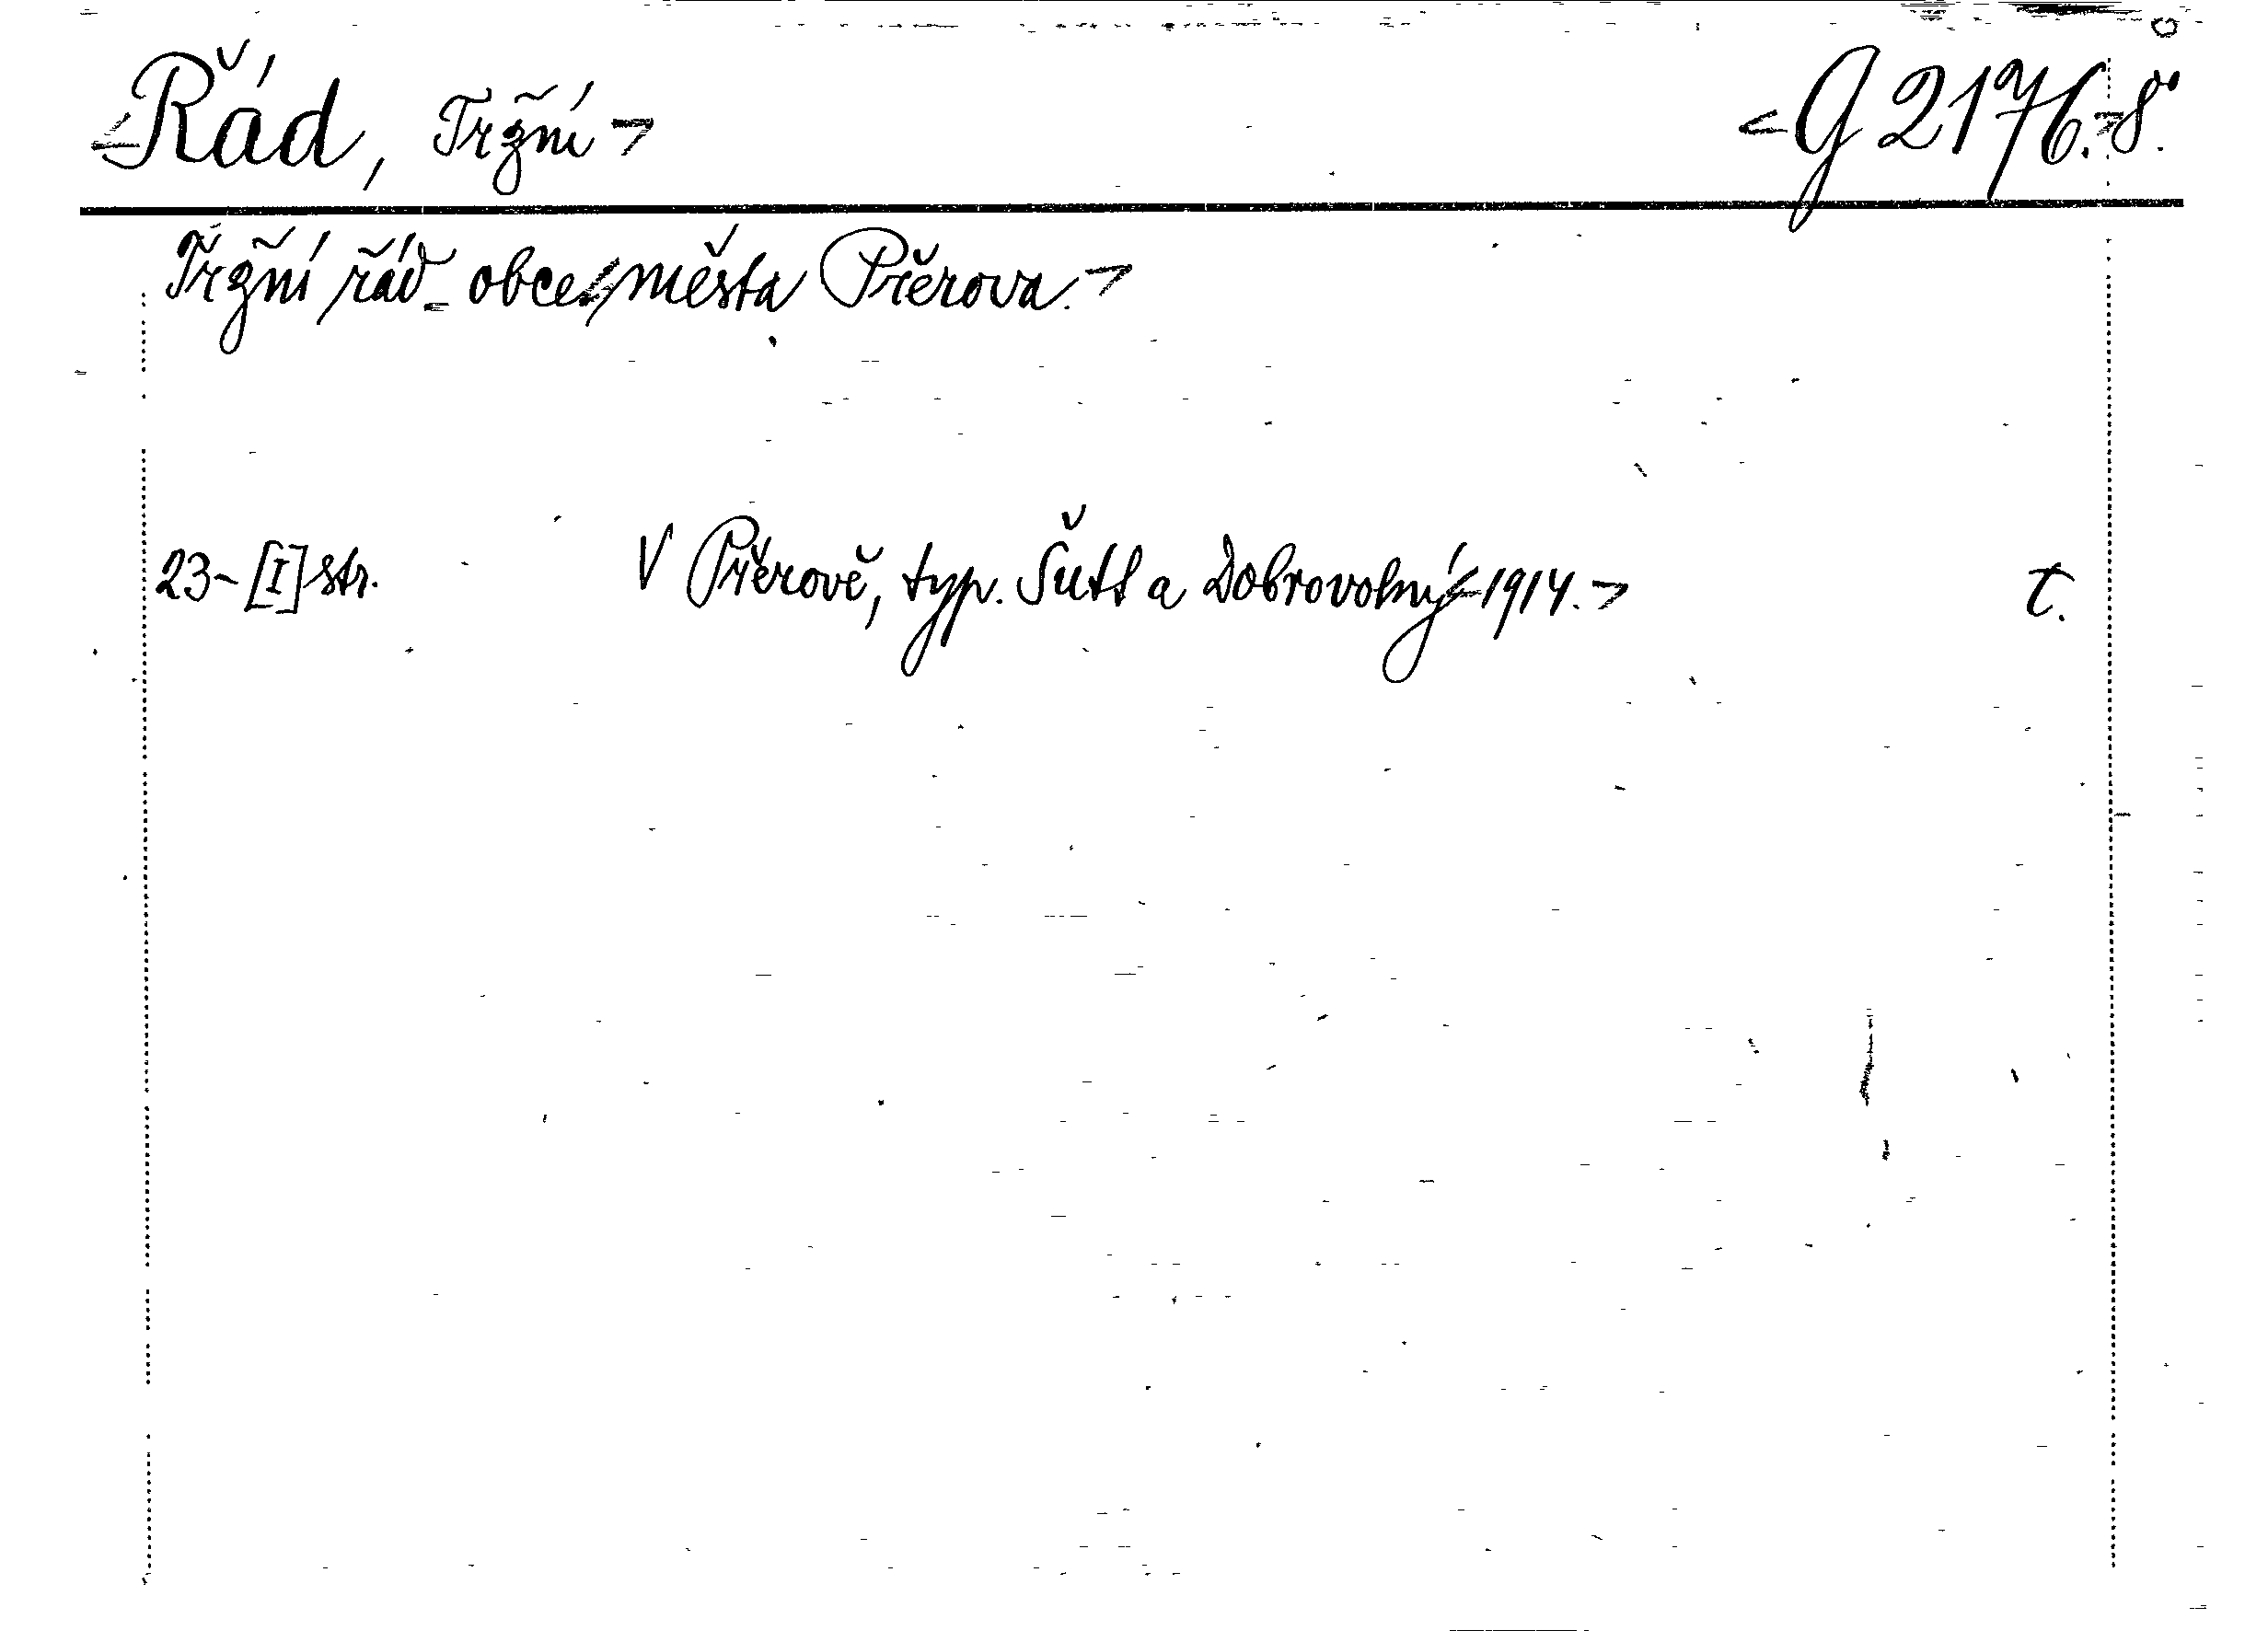 <Řád, Tržní> <G 2176.>8°.
Tržní řád obce města Přerova.>
23-[I] str. V Přerově, typ. Šutt a Dobrovolný<1914.> t.